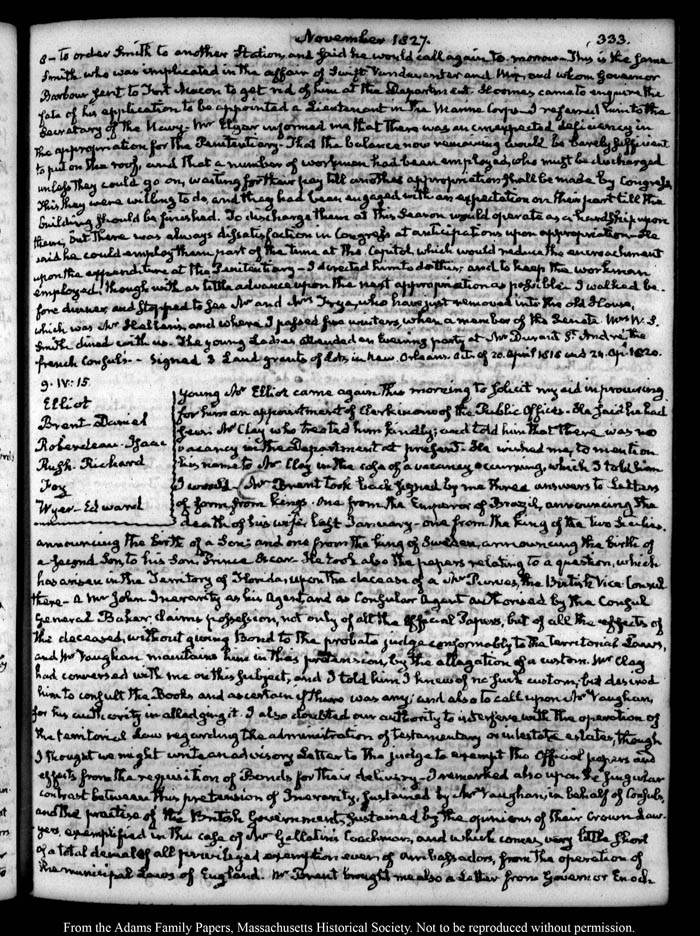 November 1827. 333.
8 — to order Smith to another Station, and said he would call again to-morrow. This is the same
Smith who was implicated in the affair of Swift Vandeventer and Mix, and whom Governor
Barbour sent to Fort Macon to get rid of him at the Department. comes came to enquire the
fate of his application to be appointed a Lieutenant in the Marine Corps. I referred him to the
Secretary of the Navy. Mr Elgar informed me that there was an unexpected deficiency in
the appropriation for the Penitentiary. That the balance now remaining would be barely sufficient
to put on the roof, and that a number of workmen had been employed, who must be discharged
unless they could go on, waiting for their pay till another appropriation shall be made by Congress.
This they were willing to do, and they had been engaged with an expectation on their part till the
building should be finished. To discharge them at this Season would operate as a hardship upon
them, but there was always dissatisfaction in Congress at anticipations upon appropriation. He
said he could employ them part of the time at the Capitol, which would reduce the encroachment
upon the expenditure at the Penitentiary — I directed him to do this, and to keep the workmen
employed, though with as little advance upon the next appropriation as possible. I walked be-
fore dinner, and stopped to see Mr and Mrs Frye, who have just removed into the old House,
which was Mr Hellen's, and where I passed five winters, when a member of the Senate. Mrs W. S.
Smith dined with us. The young Ladies attended an evening party at Mr Durant St. André the
french Consul's. — Signed 3 Land grants of lots in New Orleans. Acts of 20. April 1816 and 24. Ap. 1820.
9. IV: 15.
Elliot
Brent. Daniel
Roberdeau. Isaac
Rush. Richard
Foy
Wyer. Edward
young Mr Elliot came again this morning to solicit my aid in procuring
for him an appointment of Clerk in one of the Public Offices. He said he had
seen Mr Clay who treated him kindly; and told him that there was no
vacancy in the Department at present. He wished me, to mention
his name to Mr Clay in the case of a vacancy occurring, which I told him
I would. Mr Brent took back signed by me three answers to Letters
of form from Kings. One from the Emperor of Brazil, announcing the
death of his wife last January — one from the king of the two Sicilies,
announcing the birth of a Son; and one from the king of Sweden, announcing the birth of
a second Son, to his Son, Prince Oscar. He took also the papers relating to a question, which
has arisen in the Territory of Florida, upon the decease of a Mr Purves, the British Vice-Consul
there — A Mr John Innerarity as his Agent and as Consular Agent authorised by the Consul
General Baker, claims possession, not only of all the Official Papers, but of all the effects of
the deceased, without giving Bond to the probate judge conformably to the territorial Laws,
and Mr Vaughan maintains him in this pretension, by the allegation of a custom. Mr Clay
had conversed with me on this subject, and I told him I knew of no such custom; but desired
him to consult the Books and ascertain if there was any; and also to call upon Mr Vaughan,
for his authority in alledging it. I also doubted our authority to interfere with the operation of
the territorial Law regarding the administration of testamentary or intestate estates, though
I thought we might write an advisory Letter to the judge to exempt the Official papers and
effects from the requisition of Bonds for their delivery — I remarked also upon the singular
contrast between this pretension of Innerarity, sustained by Mr Vaughan, in behalf of Consuls,
and the practise of the British Government, sustained by the opinions of their Crown Law-
yers, exemplified in the case of Mr Gallatin's Coachman, and which comes very little short
of a total denial of all privileged exemption even of ambassadors, from the operation of
the municipal Laws of England. Mr Brent brought me also a Letter from Governor Enoch
From the Adams Family Papers, Massachusetts Historical Society. Not to be reproduced without permission.